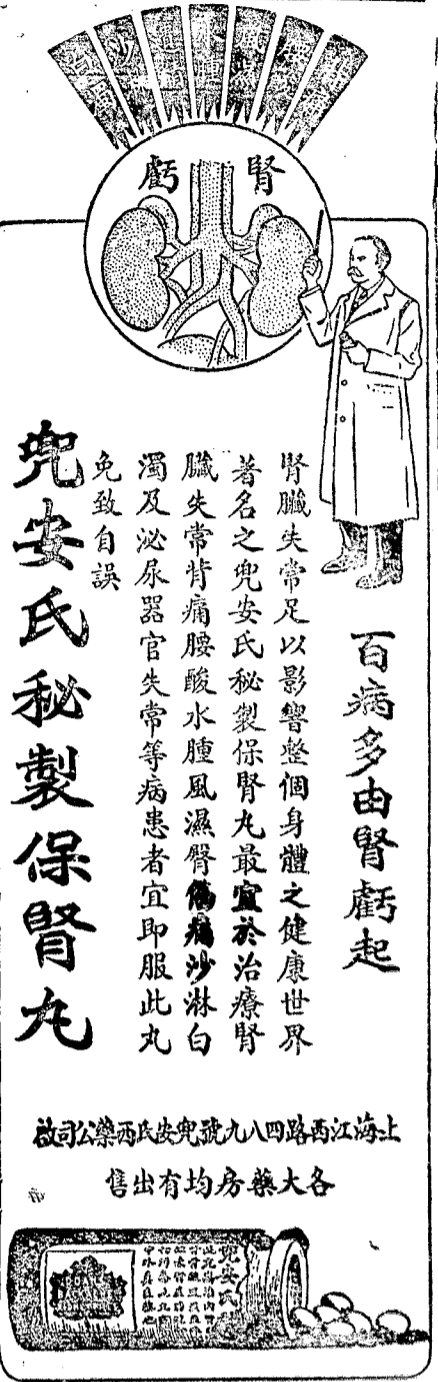 腎虧
百病多由腎虧起
腎臟失常足以影響整個身體之健康世界
著名之兜安氏秘製保腎丸最宜於治療腎
臟失常背痛腰酸水腫風濕臀傷痛沙淋白
濁及泌尿器官失常等病患者宜即服此丸
免致自誤
兜安氏秘製保腎丸
上海江西路四八九號兜安氏西藥公司啟
各大藥房均有出售
兜安氏